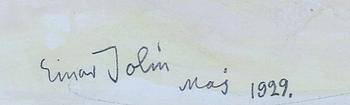 Einar Jolin
Maj 1929.